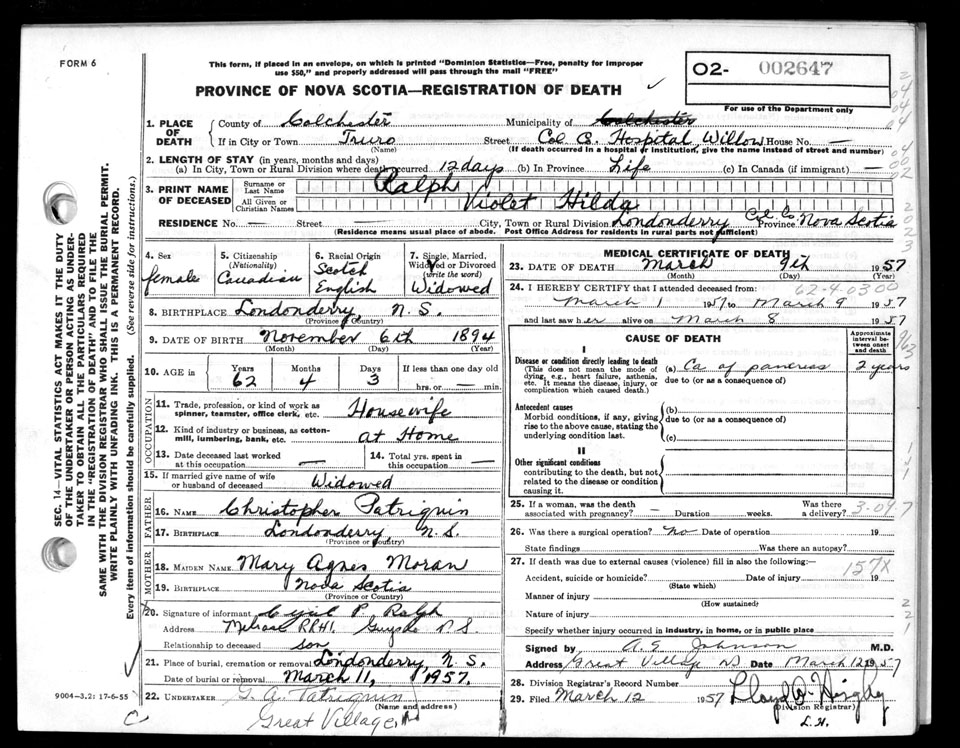 FORM 6
This form, if placed in an envelope, on which is printed "Dominion Statistics—Free, penalty for improper
use $50," and properly addressed will pass through the mail "FREE"
PROVINCE OF NOVA SCOTIA—REGISTRATION OF DEATH
O2- 002647
For use of the Department only
SEC. 14—VITAL STATISTICS ACT MAKES IT THE DUTY
OF THE UNDERTAKER OR PERSON ACTING AS UNDER-
TAKER TO OBTAIN ALL THE PARTICULARS REQUIRED
IN THE "REGISTRATION OF DEATH" AND TO FILE THE
SAME WITH THE DIVISION REGISTRAR WHO SHALL ISSUE THE BURIAL PERMIT.
WRITE PLAINLY WITH UNFADING INK. THIS IS A PERMANENT RECORD.
Every item of information should be carefully supplied. (See reverse side for instructions.)
1. PLACE OF DEATH County of Colchester Municipality of Colchester
If in City or Town Truro Street Col Co. Hospital, Willow House No. —
(Name) (If death occurred in a hospital or institution, give the name instead of street and number)
2. LENGTH OF STAY (in years, months and days)
(a) In City, Town or Rural Division where death occurred 12 days (b) In Province Life (c) In Canada (if immigrant) —
3. PRINT NAME OF DECEASED Surname or Last Name Ralph
All Given or Christian Names Violet Hilda
RESIDENCE No. — Street — City, Town or Rural Division Londonderry Col. Co. Province Nova Scotia
(Residence means usual place of abode. Post Office Address for residents in rural parts not sufficient)
4. Sex female
5. Citizenship (Nationality) Canadian
6. Racial Origin Scotch English
7. Single, Married, Widowed or Divorced (write the word) Widowed
8. BIRTHPLACE Londonderry, N. S.
(Province or Country)
9. DATE OF BIRTH November 6th 1894
(Month) (Day) (Year)
10. AGE in Years 62 Months 4 Days 3 If less than one day
hrs. or — min.
OCCUPATION
11. Trade, profession, or kind of work as spinner, teamster, office clerk, etc. Housewife
12. Kind of industry or business, as cotton-mill, lumbering, bank, etc. at Home
13. Date deceased last worked at this occupation —
14. Total yrs. spent in this occupation —
15. If married give name of wife or husband of deceased Widowed
FATHER
16. NAME Christopher Patriquin
17. BIRTHPLACE Londonderry, N. S.
(Province or Country)
MOTHER
18. MAIDEN NAME Mary Agnes Moran
19. BIRTHPLACE Nova Scotia
(Province or Country)
20. Signature of informant Cyril P. Ralph
Address RR#1, N.S.
Relationship to deceased son
21. Place of burial, cremation or removal Londonderry, N. S.
Date of burial or removal March 11, 1957.
22. UNDERTAKER G. A. Patriquin
(Name and address)
Great Village
9004—3.2: 17-6-55
MEDICAL CERTIFICATE OF DEATH
23. DATE OF DEATH March 9th 1957
(Month) (Day) (Year)
24. I HEREBY CERTIFY that I attended deceased from: 62-4-0300
March 1 1957 to March 9 1957
and last saw her alive on March 8 1957
CAUSE OF DEATH
Approximate interval between onset and death
I
Disease or condition directly leading to death
(This does not mean the mode of dying, e.g., heart failure, asthenia, etc. It means the disease, injury, or complication which caused death.)
(a) Ca of pancreas 2 years
due to (or as a consequence of)
Antecedent causes
Morbid conditions, if any, giving rise to the above cause, stating the underlying condition last.
(b)
due to (or as a consequence of)
(c)
II
Other significant conditions
contributing to the death, but not related to the disease or condition causing it.
25. If a woman, was the death associated with pregnancy? — Duration weeks. Was there a delivery? 3-047
26. Was there a surgical operation? no Date of operation 19
State findings Was there an autopsy?
27. If death was due to external causes (violence) fill in also the following:— 157X
Accident, suicide or homicide? Date of injury 19
(State which)
Manner of injury
(How sustained)
Nature of injury
Specify whether injury occurred in industry, in home, or in public place
Signed by A. E. Johnson M.D.
Address Great Village NS Date March 12 1957
28. Division Registrar's Record Number
29. Filed March 12 1957
(Division Registrar)
L.H.